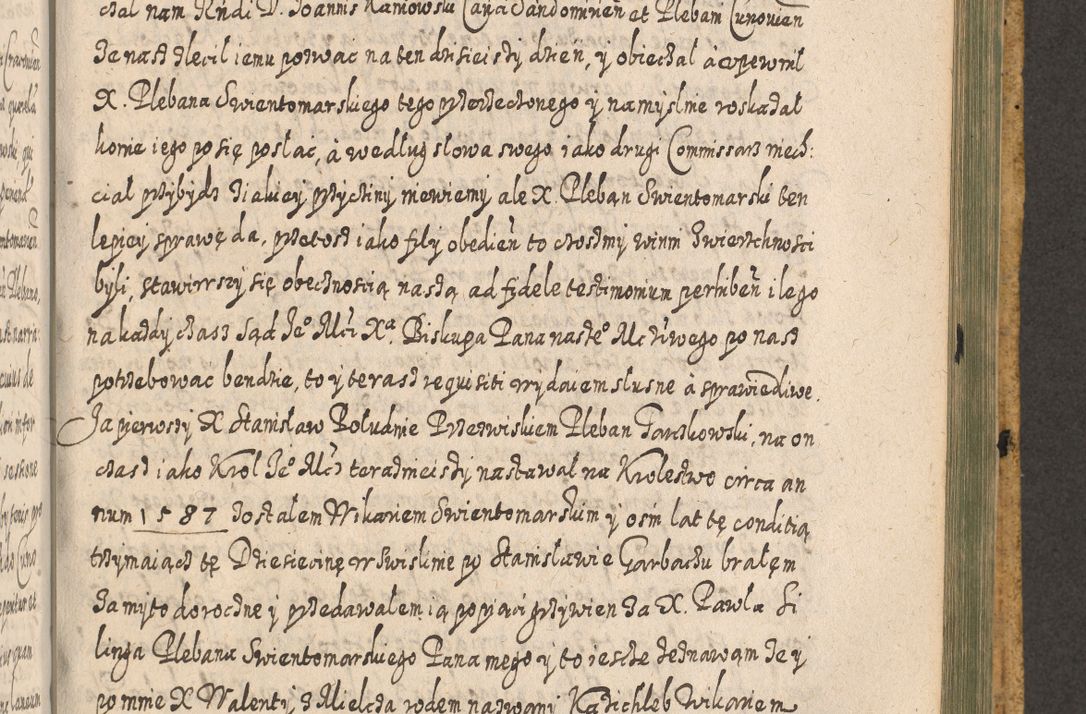 dal nam Rndi D. Joannis Kamowski Can̄a Sandomirien̄ et Plebani Cunovien̄
że nasz zlecił iemu pozwac na ten dzisieiszy dzień, y obieczał a vpewnił
X. Plebana Swientomarskiego tego przerzeczonego y namyslnie roskazał
konie iego po się posłac, a według słowa swego iako drugi Commissarz niech:
ciał przybydz z iakiey przyczyny niewiemy ale X. Pleban Swientomarski ten
lepiey sprawę da, przetosz iako fily obedien̄ to czosmy winni zwierzchnosci
byli, stawirrszy się obecznoscią naszą ad fidele testimonium perhiben̄ ilego
na każdy czasz sąd Jeº Mći Xª. Biskupa Pana naszeº Mczywego po nasz
potrzebowac bendzie, to y terasz requisiti wydaiem slusne a sprawiedliwe.
Ja pierwszy X Stanisław Południe Przezwiskiem Pleban Garzkowski, na on
czasz iako Krol Jeº Mćz teraznieiszy nastawał na Krolestwo circa an
num 1587 zostałem Wikariem Swientomarskim y osm lat tę conditią
trzymaiącz tę Dziesiecinę w Swislinie po Stanisławie Garbaczu brałęm
za myto doroczne y przedawałem ią po piąci grzywien za X. Pawła Si
linga Plebana Swientomarskiego Pana mego y to ieszcze zeznawąm że y
po mnie X Walenty z Mielcza rodem nazwany Kazichleb Wikariem